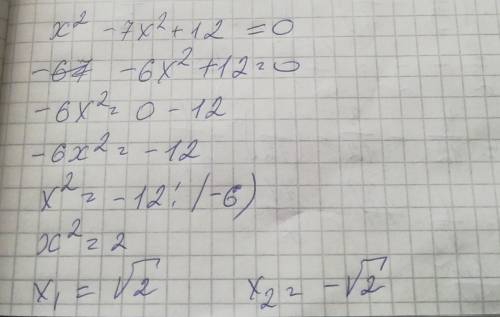 x² - 7x² + 12 = 0
-6x² + 12 = 0
-6x² = 0 - 12
-6x² = -12
x² = -12 : (-6)
x² = 2
x₁ = √2 x₂ = -√2